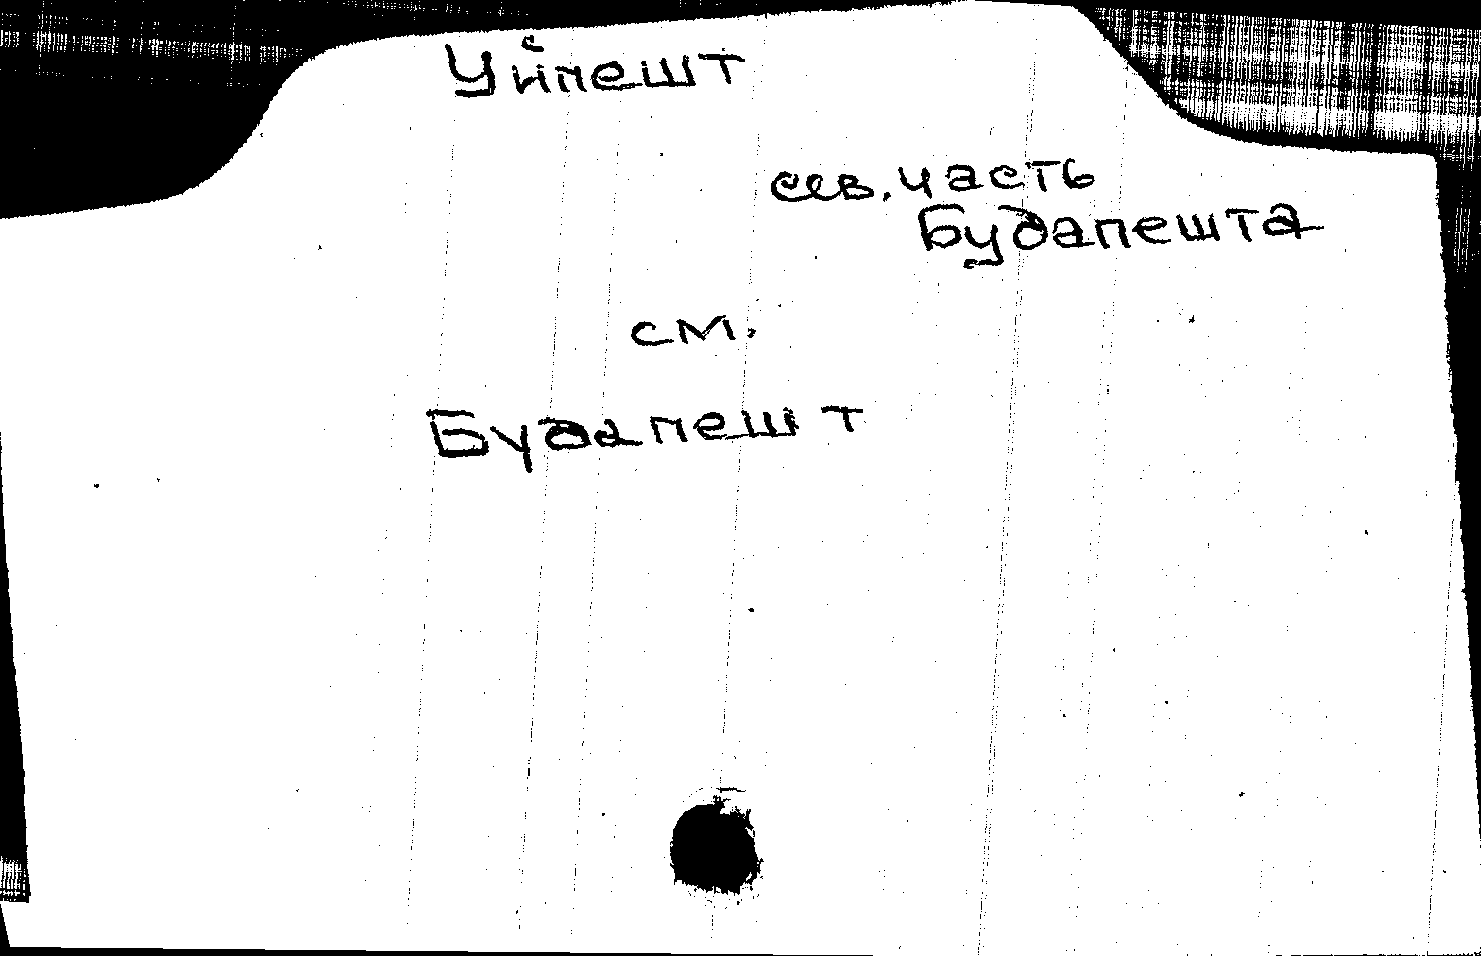 Уйпешт
сев. часть
Будапешта
см.
Будапешт